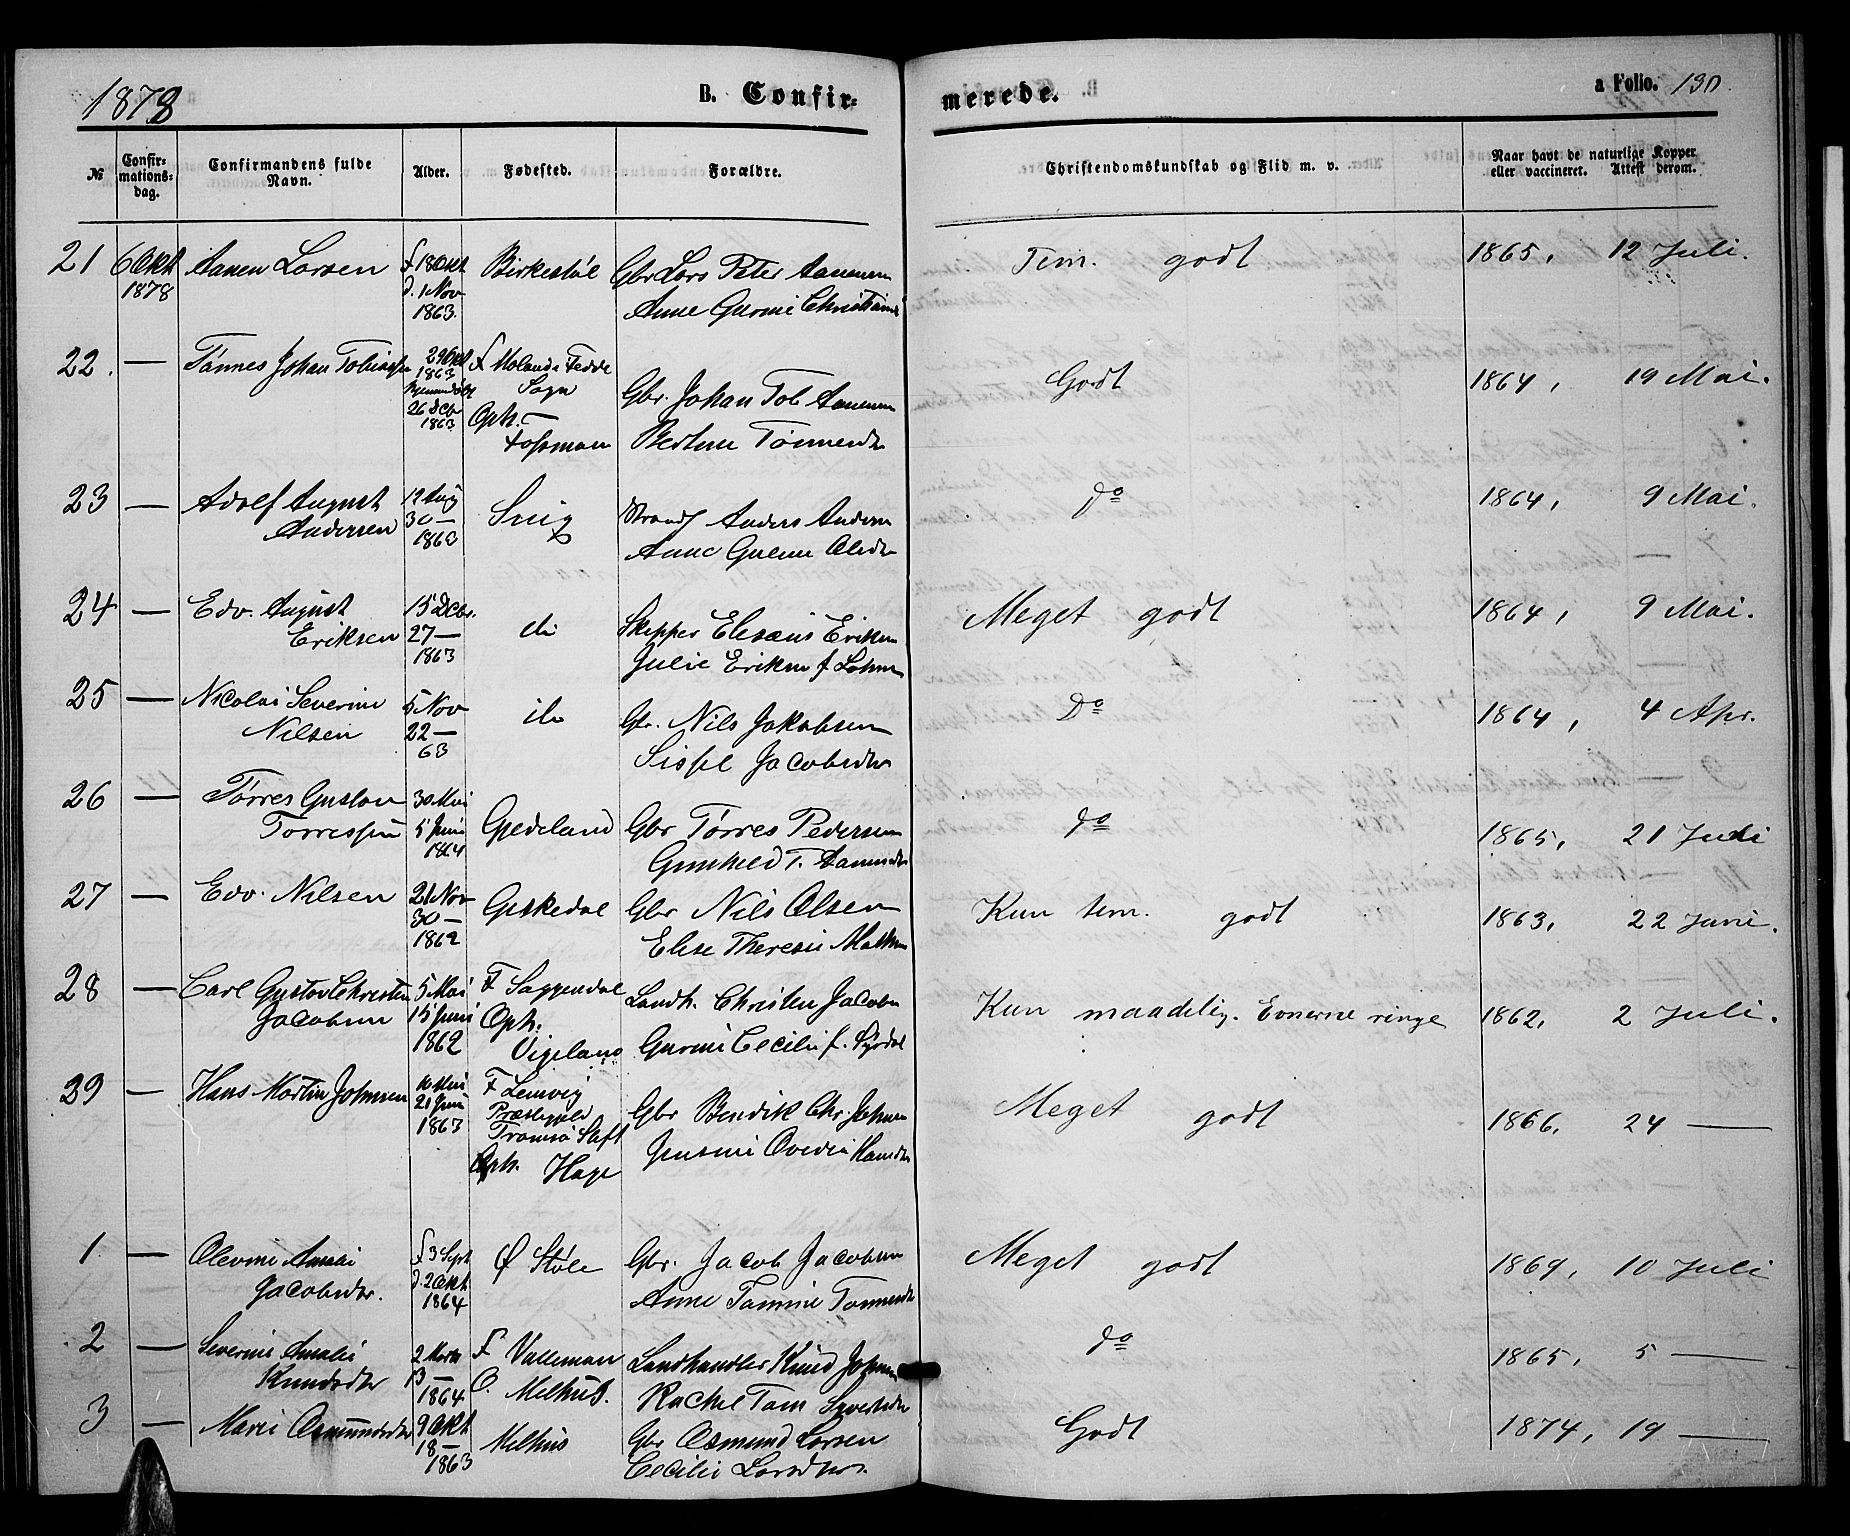 1878
B. Confir-
merede.
a Folio. 130.
№
Confir-
mations-
dag.
Confirmandens fulde
Navn.
Alder.
Fødested.
Forældre.
Christendomskundskab og Flid m. v.
Naar havt de naturlige Kopper
eller vaccineret. Attest derom.
21 6 Okt Aanen Larsen f 18 Okt Birkestøl Gbr Lars Peter Aanensen Tem. godt 1865, 12 Juli.
1878 d. 1 Nov
1863. Anne Gurine
22. — Tønnes Johan Tobiassen 29 Okt f Moland i Fedde Godt 1864, 19 Mai.
1863 Sogn Gbr. Johan Tob Aanensen
26 Dcb Oph.
1863 Fossmoen Bertine Tønnesdtr
23 — Adolf August 12 Aug Snig Anders Andersen do 1864, 9 Mai.
Andersen 30 — Anne Olsdtr
1863
24 — Edv. August 15 Dcbr. do Skipper Elesæus Eriksen Meget godt 1864, 9 Mai.
Eriksen 27 — Julie Eriksen f
1863
25 — Nicolai Severin 5 Nov do Gbr. Nils Jakobsen Do 1864, 4 Apr.
Nilsen 22 — Jacobsdtr
63
26 — Tørres Gustav 30 Mai Gjedeland Gbr Tørres Pedersen do 1865, 21 Juli
Tørressen 5 Juni Gunhild T. Aanensdtr
1864
27 — Edv. Nilsen 21 Nov Geskedal Gbr Nils Olsen Kun tem. godt 1863, 22 Juni.
30 — Elise Theresie
1862
28 — Carl Gustav Christen 5 Mai F Saggendal Landh. Christen Jacobsen Kun maadelig. Evnerne ringe 1862, 2 Juli.
Jacobsen 15 Juni Oph.
1862 Vigeland Gurine Cecilie f. Syrdal
29 — Hans Martin Johnsen 10 Mai F Lenvig Meget godt 1866, 24 —
21 Juni Præstegjeld Gbr Bendik Chr. Johnsen
1863 Tromsø Stift
Oph. Hage Ovedia Hansdtr
1 — Olevine Amalie f 3 Sept Ø Støle Gbr. Jacob Jacobsen Meget godt 1869, 10 Juli
Jacobsdtr. d. 2 Okt
1864 Anne Tomine Tønnesdtr
2 — Severine Amalie 2 Marts F Valleman Landhandler Knud Johnsen do 1865, 5 —
Knudsdtr 13 — O. Melhus. Rachel Tom
1864
3 — Marie Osmundsdtr 9 Okt Melhus Gbr Osmund Larsen Godt 1874, 19 —
18 — Cecilie Larsdtr.
1863